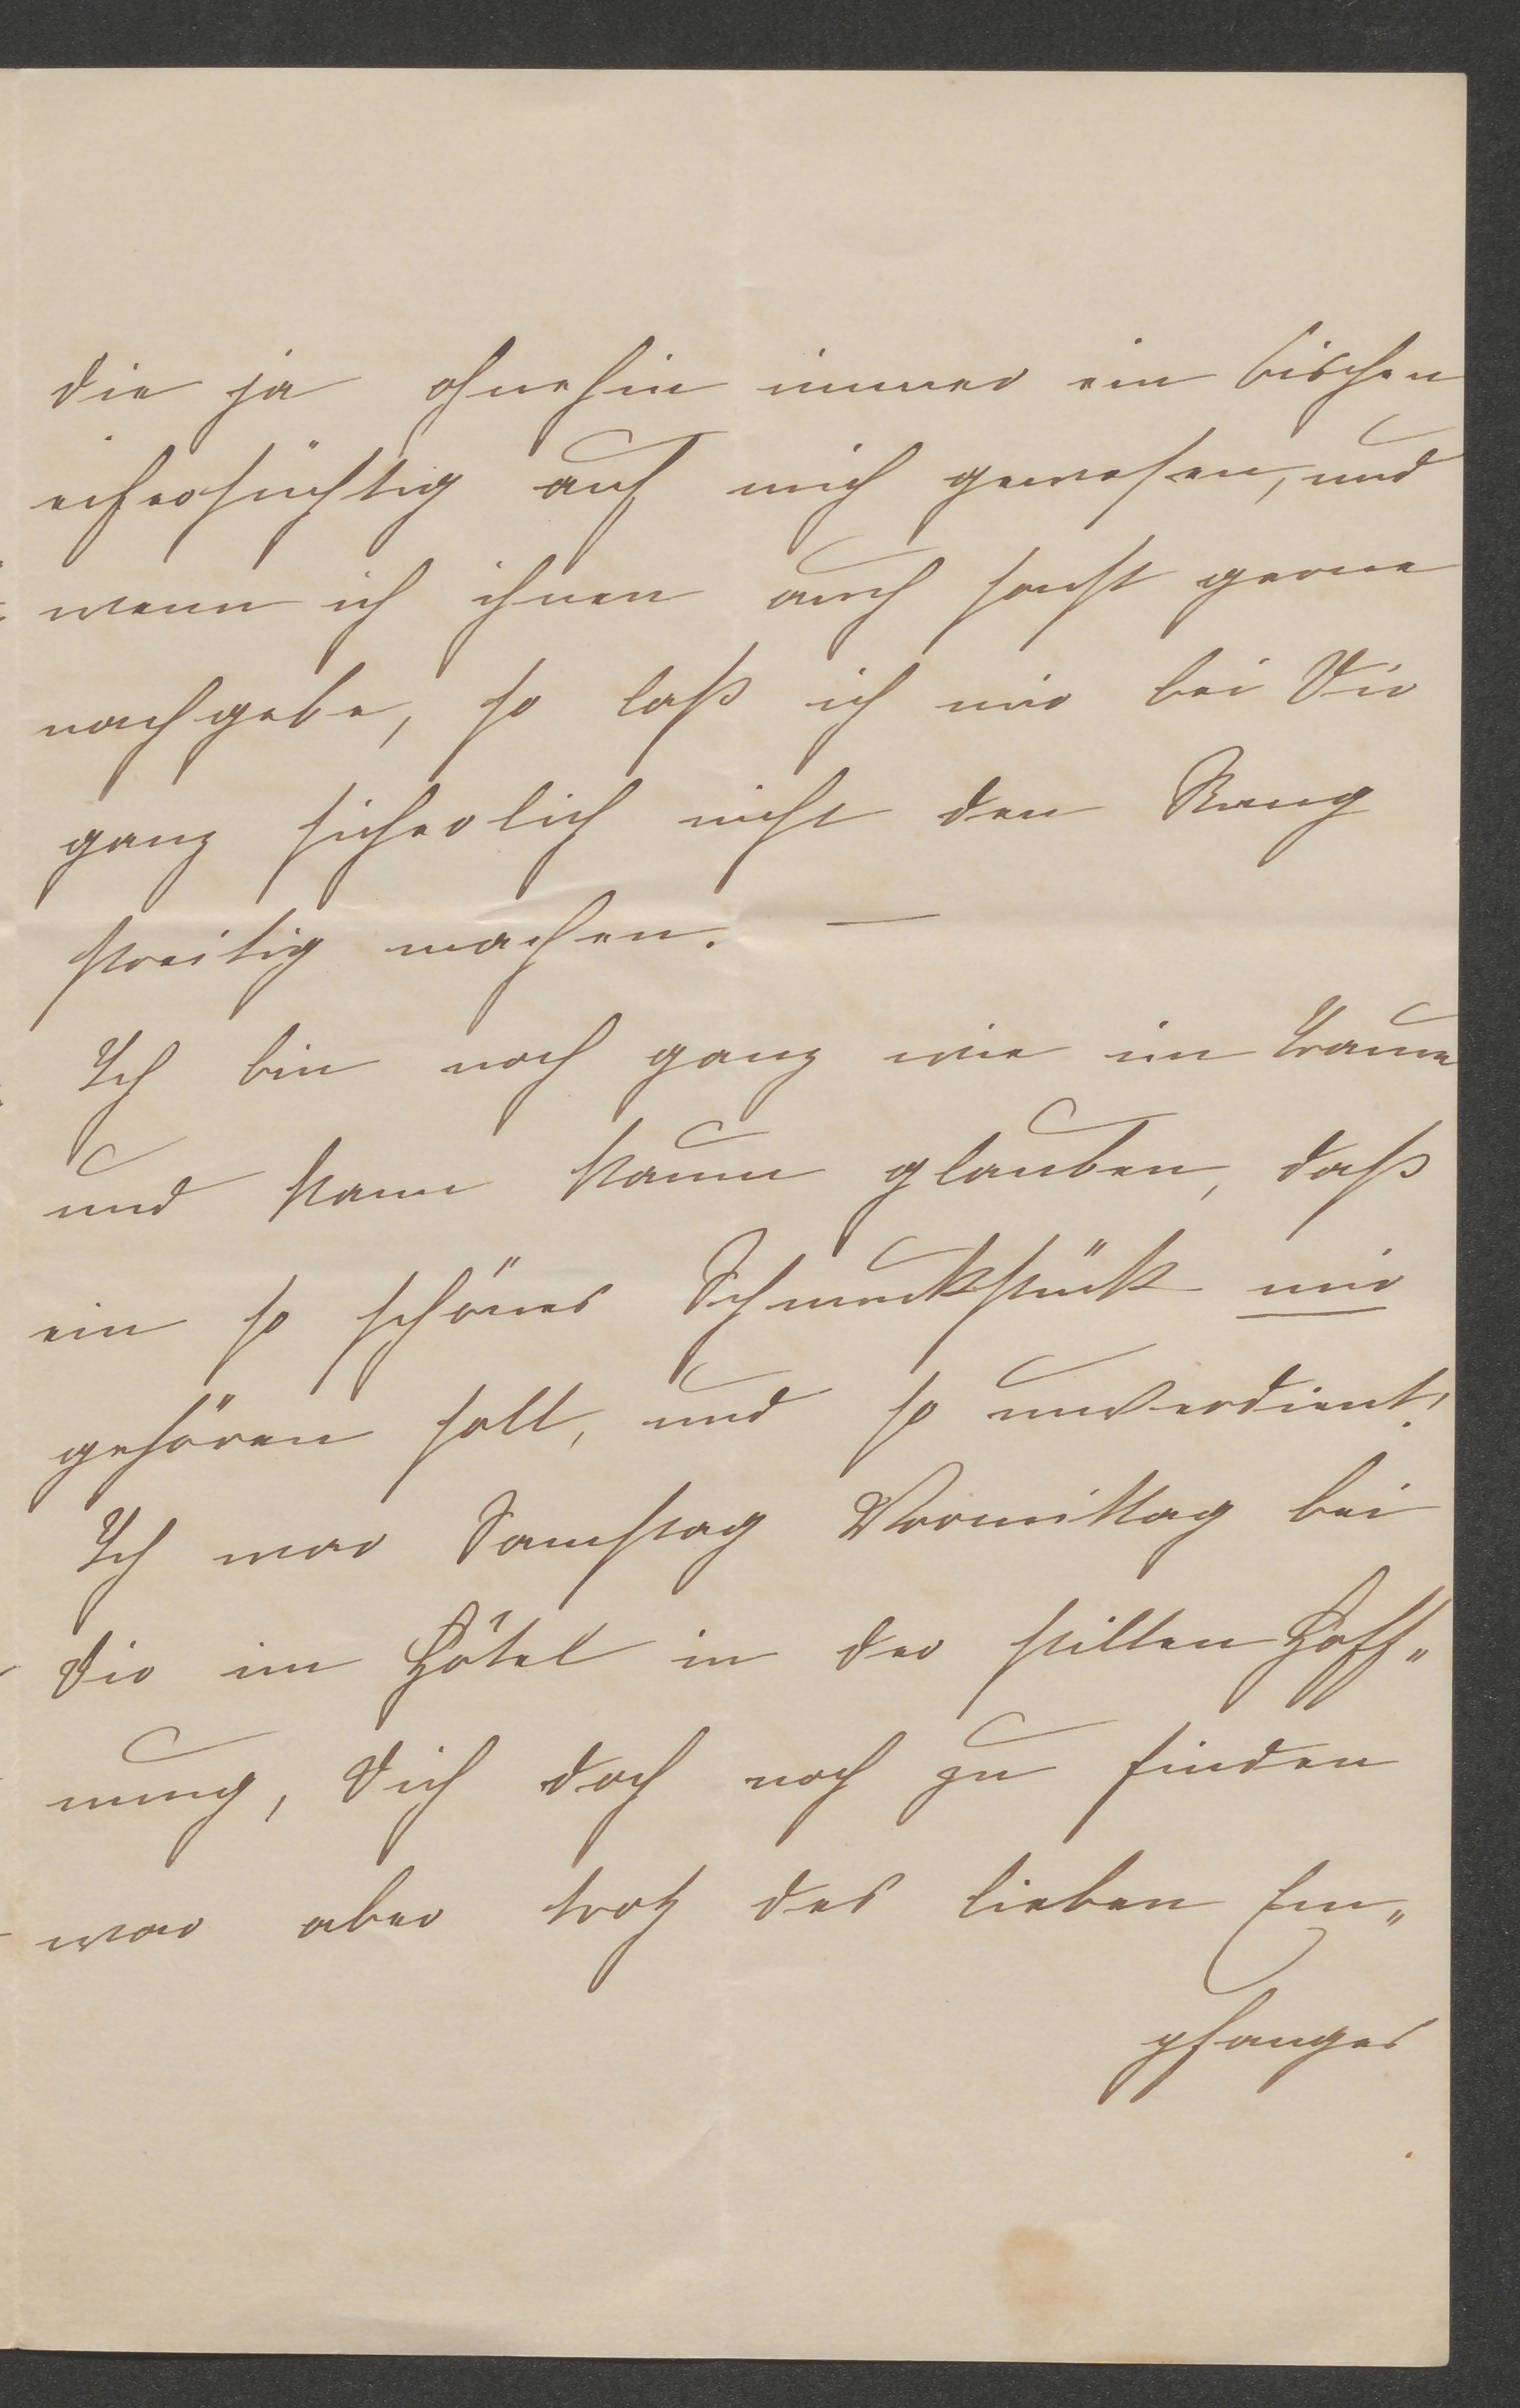 die ja ohnehin immer ein bischen
eifersüchtig auf mich gewesen, und
wenn ich ihnen auch sonst gerne
nachgebe, so laß ich mir bei Dir
ganz sicherlich nicht den Rang
streitig machen. —
Ich bin noch ganz wie im Traum
und kann kaum glauben, daß
ein so schönes Schmuckstück mir
gehören soll, und so unverdient!
Ich war Samstag Vormittag bei
Dir im Hôtel in der stillen Hoff„
nung, Dich doch noch zu finden
war aber trotz des lieben Em„
pfanges